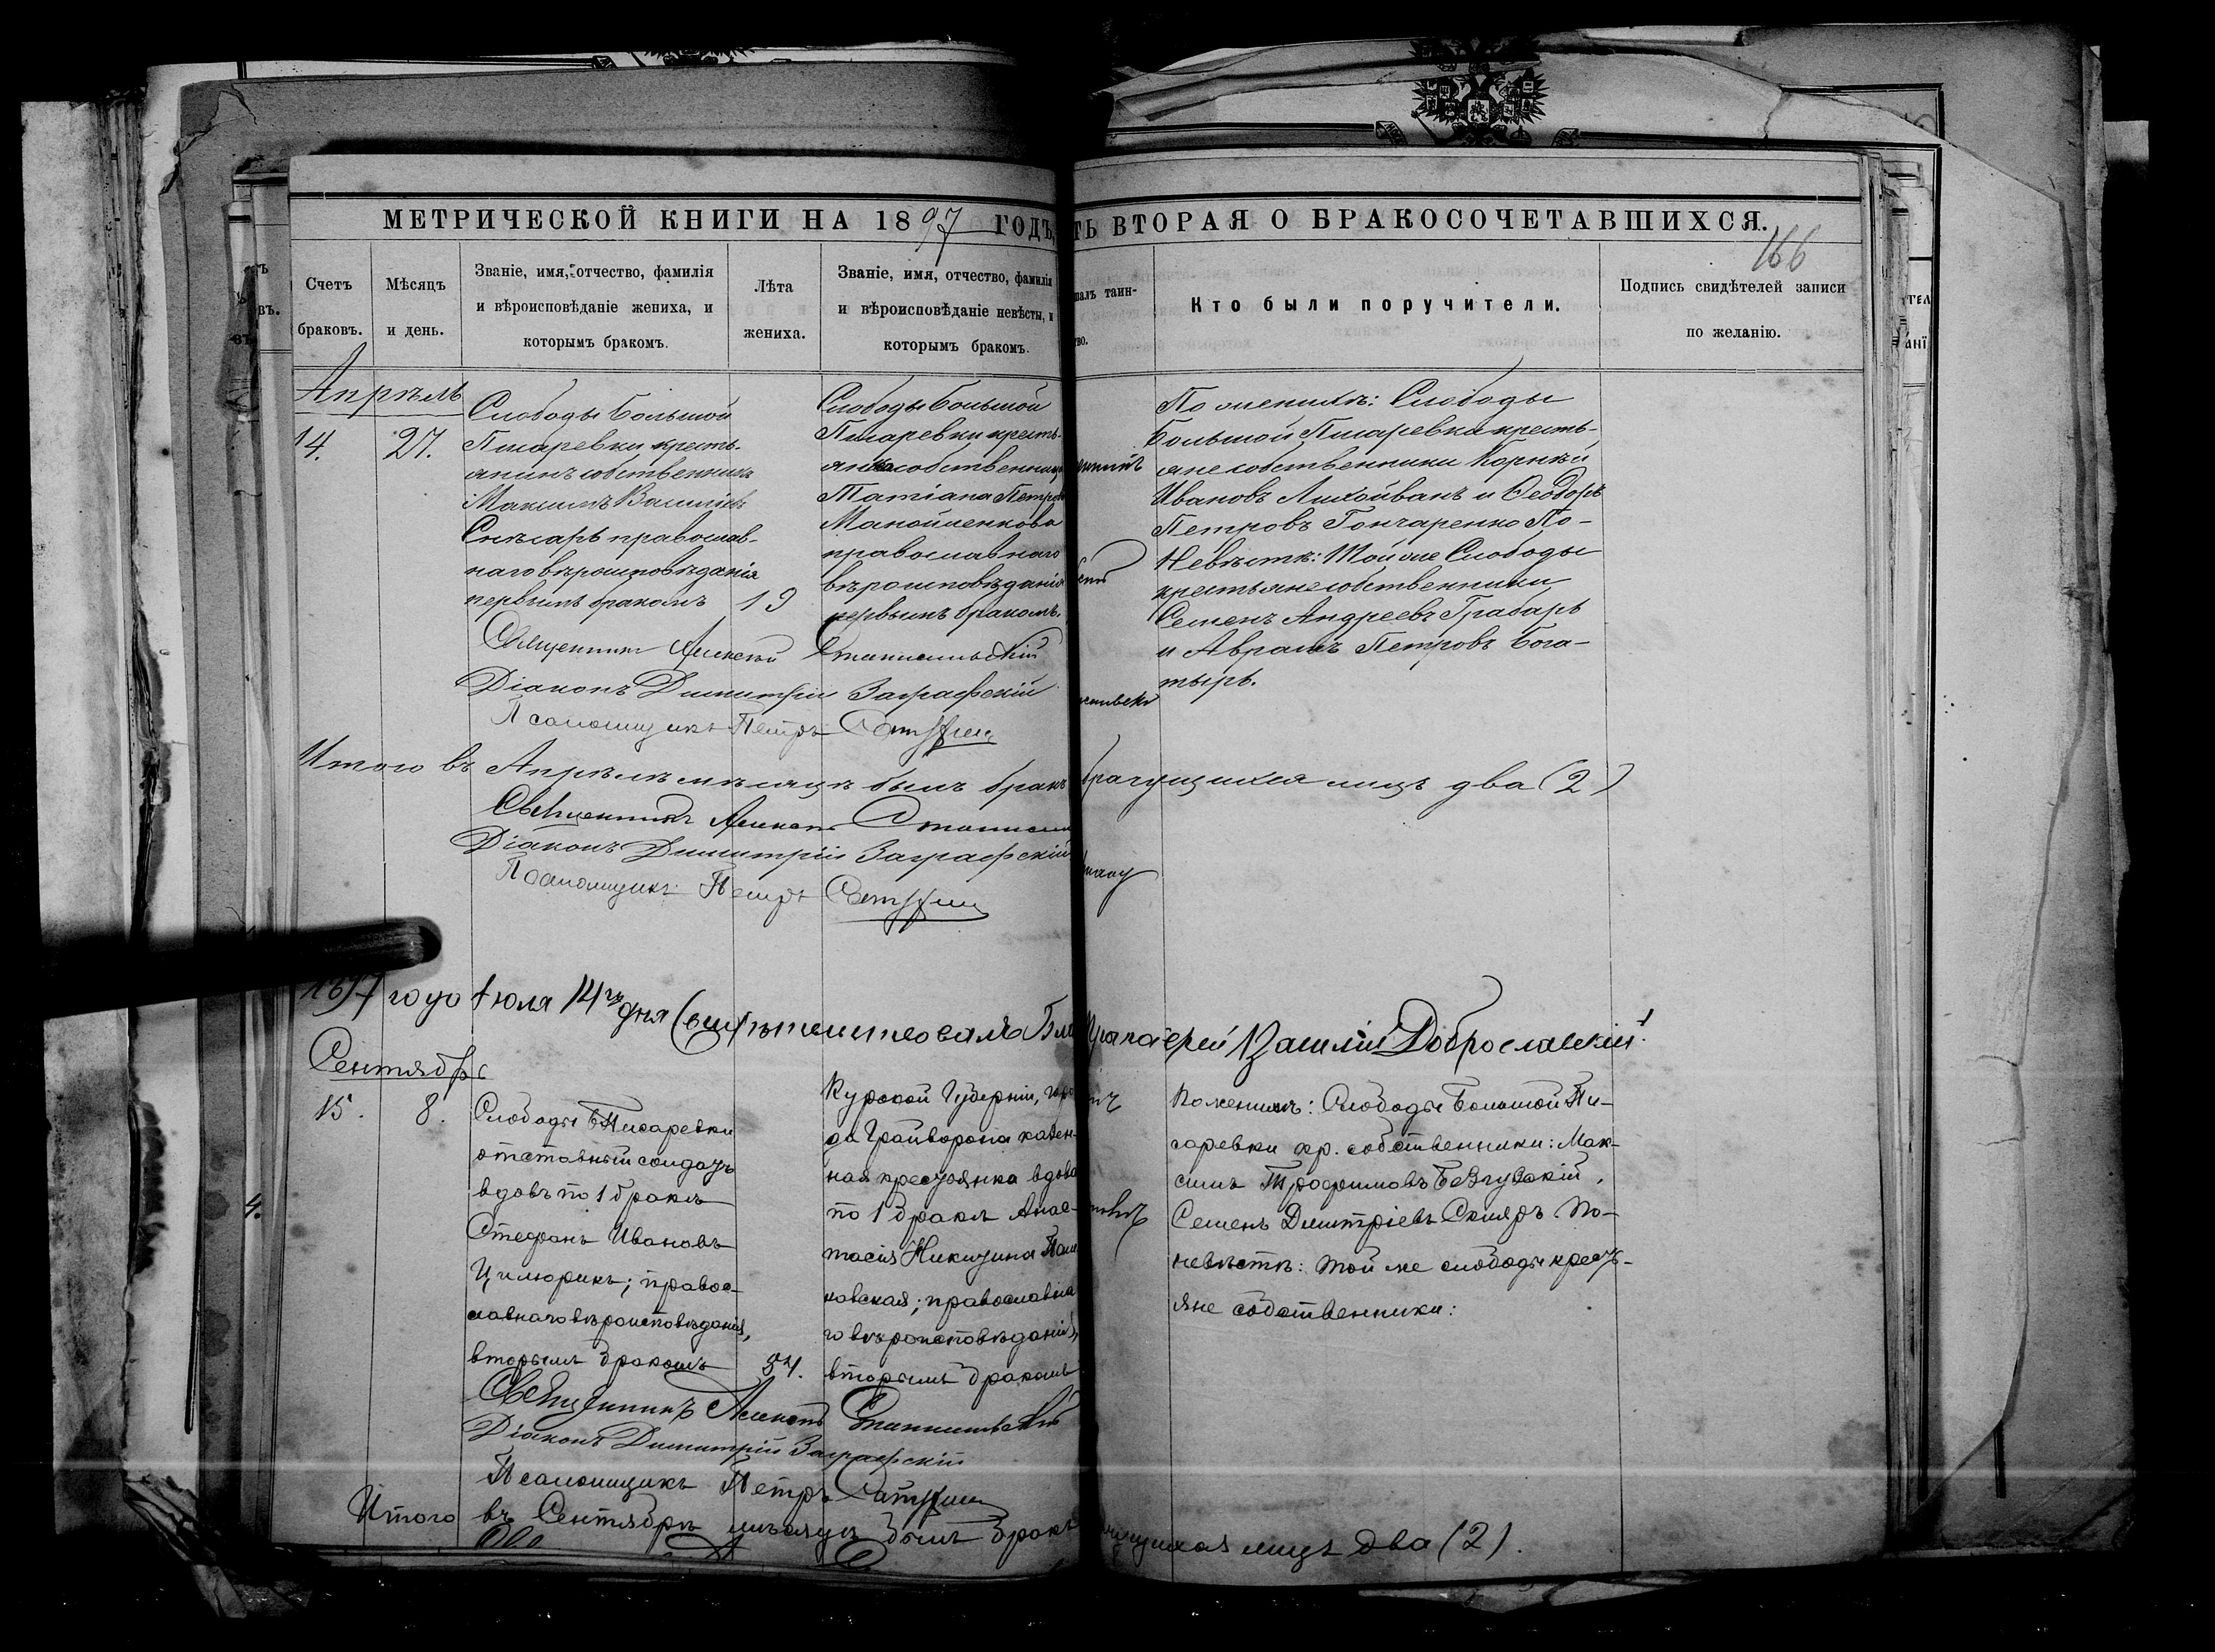 МЕТРИЧЕСКОЙ КНИГИ НА 1897 ГОДЪ,
ТЬ ВТОРАЯ О БРАКОСОЧЕТАВШИХСЯ.
166
Счетъ
браковъ.
Мѣсяцъ
и день.
Званіе, имя, отчество, фамилія
и вѣроисповѣданіе жениха, и
которымъ бракомъ.
Лѣта
жениха.
Званіе, имя, отчество, фамилія
и вѣроисповѣданіе невѣсты, и
которымъ бракомъ.
таин-
Кто были поручители.
Подпись свидѣтелей записи
по желанію.
Апрѣль
14.
27.
Слободы Большой
Писаревки кресть-
янинъ собственникъ
Максимъ Василіевъ
Снѣсарь православ-
наго вѣроисповѣданія
первымъ бракомъ
19
Слободы Большой
Писаревки кресть-
янка собственница
Татіана Петрова
Манойленкова
православнаго
вѣроисповѣданія
первымъ бракомъ.
По женихѣ: Слободы
Большой Писаревки кресть-
яне собственники Корнѣй
Ивановъ Лихойванъ и Ѳеодоръ
Петровъ Гончаренко По-
Невѣстѣ: Той же Слободы
крестьяне собственники
Семенъ Андреевъ Грабарь
и Аврамъ Петровъ Бога-
тырь.
Священникъ Алексѣй
Діаконъ Димитрій Заграфскій
Псаломщикъ Петръ
Итого въ Апрѣлѣ мѣсяцѣ былъ бракъ
брачущихся лицъ два (2)
Священникъ Алексѣй
Діаконъ Димитрій Заграфскій
Псаломщикъ Петръ
1897 года Іюля 14го дня
Василій Доброславскій
Сентябрь
15.
8.
Слободы Б Писаревки
отставный солдатъ
вдовъ по 1 бракѣ
Стефанъ Ивановъ
Цилюрикъ; правос-
лавнаго вѣроисповѣданія,
вторымъ бракомъ
54.
Курской Губерніи, горо
да Грайворона казен-
ная крестьянка вдова
по 1 бракѣ Анас-
тасія Никитина
ковская; православна
го вѣроисповѣданія,
вторымъ бракомъ
По женихѣ: Слободы Большой Пи-
саревки кр. собственники: Мак-
симъ Трофимовъ Безгузкій,
Семенъ Димитріевъ Скляръ По-
невѣстѣ: той же слободы кресть-
яне собственники:
Священникъ Алексѣй
Діаконъ Димитрій Заграфскій
Псаломщикъ Петръ
Итого въ Сентябрѣ мѣсяцѣ былъ бракъ
лицъ два (2).